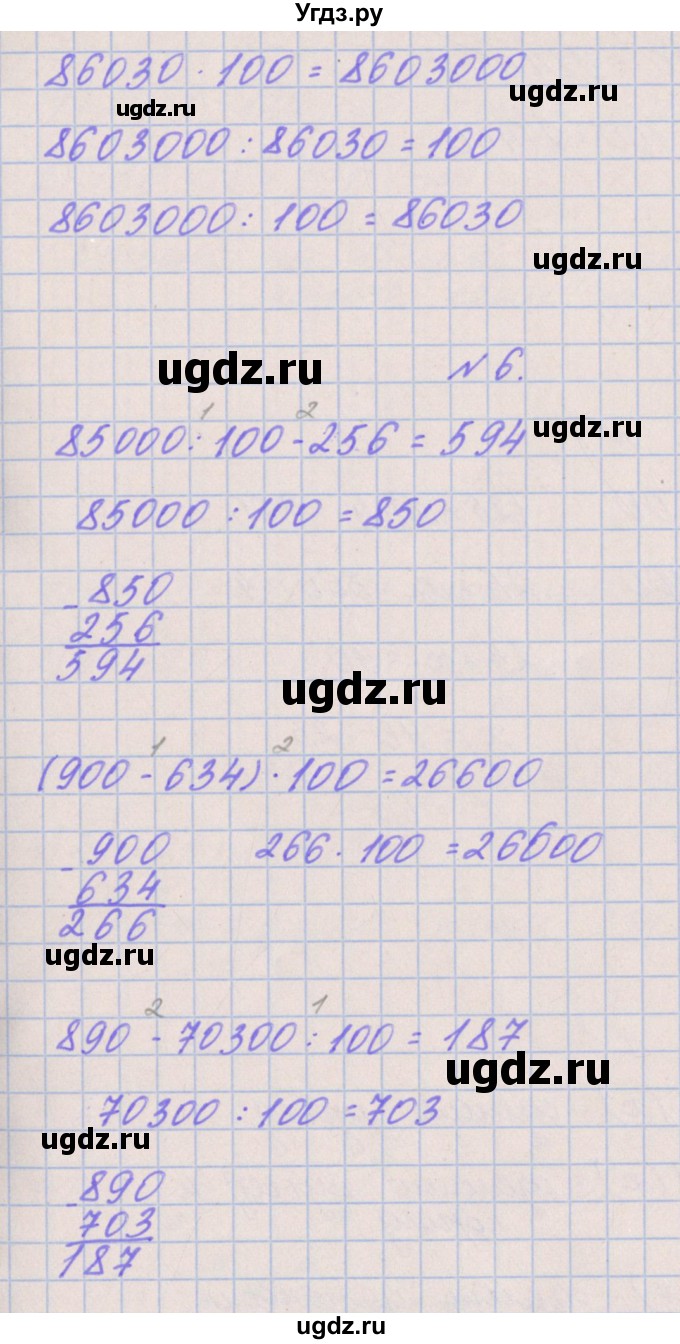 Угдз.ру
86030 · 100 = 8603000
ugdz.ru
ugdz.ru
8603000 : 86030 = 100
8603000 : 100 = 86030
ugdz.ru
ugdz.ru
№ 6.
1 2
85000 : 100 - 256 = 594
ugdz.ru
85000 : 100 = 850
- 850
256
594
ugdz.ru
1 2
(900 - 634) · 100 = 26600
- 900
634
266
266 · 100 = 26600
ugdz.ru
2 1
890 - 70300 : 100 = 187
ugdz.ru
70300 : 100 = 703
ugdz.ru
- 890
703
187
ugdz.ru